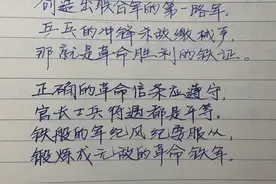 创造出联合军的第一路军。
乒乓的冲锋杀敌缴械声,
那就是革命胜利的铁证。
正确的革命信条应遵守,
官长士兵待遇都是平等。
铁般的军纪风纪要服从,
锻炼成无敌的革命铁军。